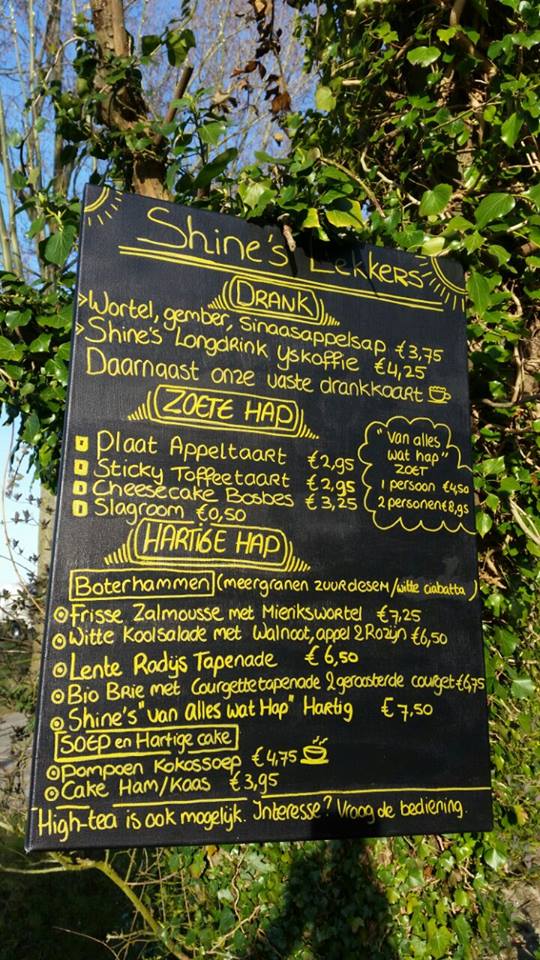 Shine's Lekkers
DRANK
> Wortel, gember, sinaasappelsap €3,75
> Shine's Longdrink yskoffie €4,25
Daarnaast onze vaste drankkaart
ZOETE HAP
Plaat Appeltaart €2,95
Sticky Toffeetaart €2,95
Cheesecake Bosbes €3,25
Slagroom €0,50
"Van alles
wat hap"
ZOET
1 persoon €4,50
2 personen €8,95
HARTIGE HAP
Boterhammen (meergranen zuurdesem/witte ciabatta)
Frisse Zalmousse met Mierikswortel €7,25
Witte Koolsalade met Walnoot, appel & Rozijn €6,50
Lente Radijs Tapenade €6,50
Bio Brie met Courgettetapenade & geroosterde courget €6,75
Shine's "van alles wat Hap" Hartig €7,50
SOEP en Hartige cake
Pompoen Kokossoep €4,75
Cake Ham/Kaas €3,95
High-tea is ook mogelijk. Interesse? Vraag de bediening.